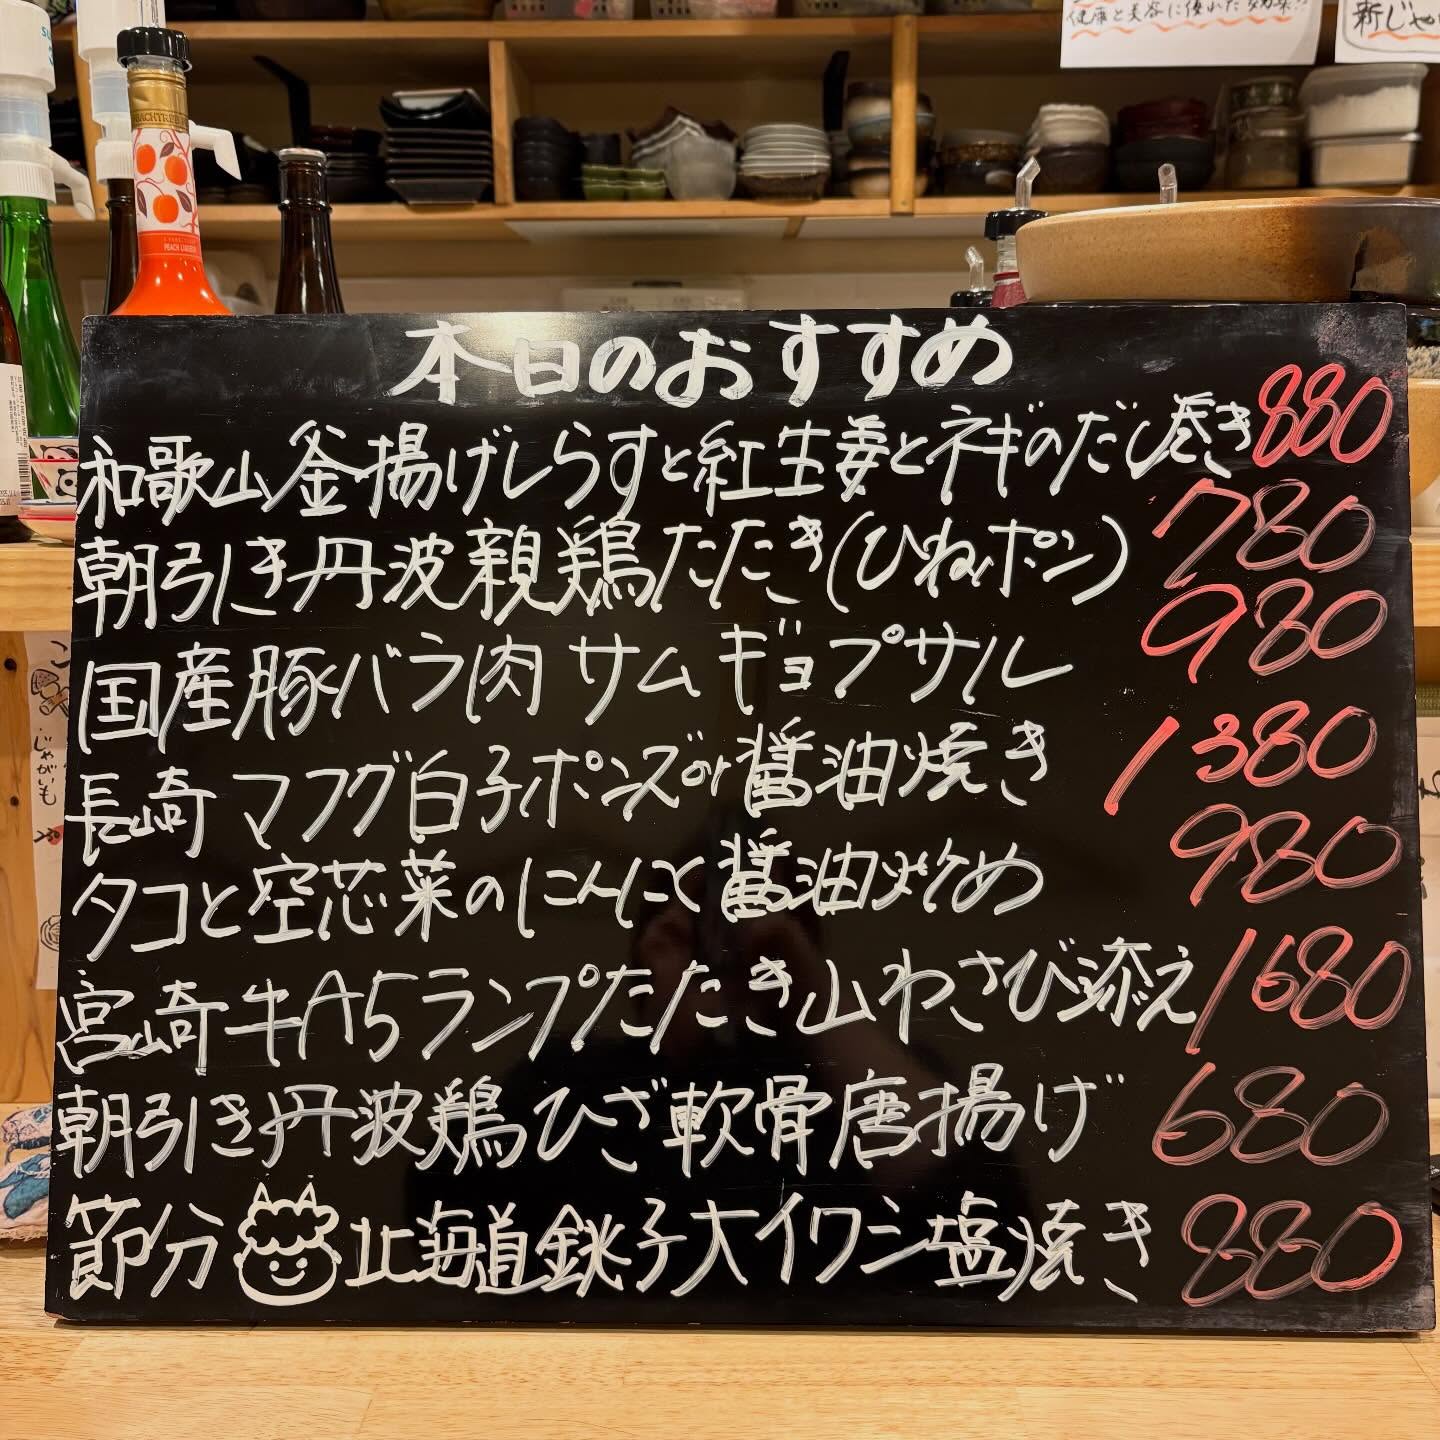 健康と美容に優れた効果!!
新じゃ
PEACHTREE
PEACH LIQUEUR
本日のおすすめ
和歌山釜揚げしらすと紅生姜とネギのだし巻き 880
朝引き丹波親鶏たたき(ひねポン) 780
国産豚バラ肉サムギョプサル 980
長崎マフグ白子ポンズor醤油焼き 1380
タコと空芯菜のにんにく醤油炒め 980
宮崎牛A5ランプたたき山わさび添え 1680
朝引き丹波鶏ひざ軟骨唐揚げ 680
節分 北海道銚子大イワシ塩焼き 880
じゃがいも